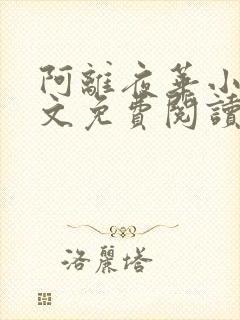 阿離夜華小
文免費閱讀
洛麗塔